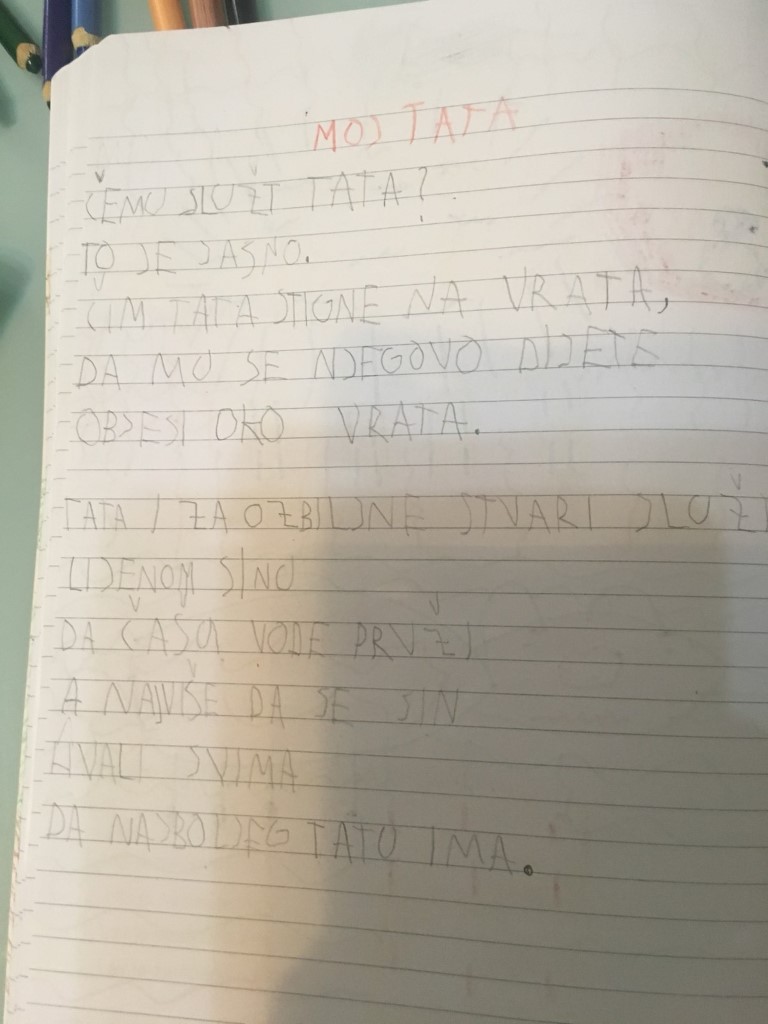 MOJ TATA
ČEMU SLUŽI TATA?
TO JE JASNO.
ČIM TATA STIGNE NA VRATA,
DA MU SE NJEGOVO DIJETE
OBJESI OKO VRATA.
TATA I ZA OZBILJNE STVARI SLUŽI
LIJENOM SINU
DA ČAŠU VODE PRUŽI
A NAJVIŠE DA SE SIN
HVALI SVIMA
DA NAJBOLJEG TATU IMA.